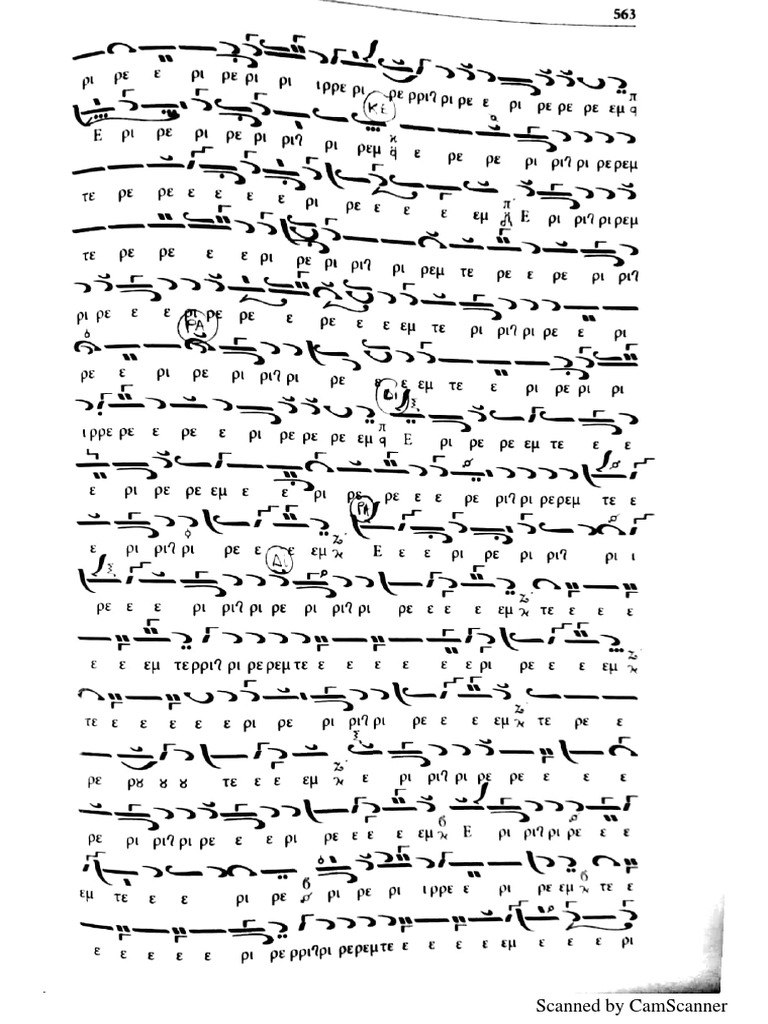 563
ρι ρε ε ρι ρε ρι ρι ιρρε ρι ρε ρριη ρι ρε ε ρι ρε ρε ρε εμ π q
ΚΕ
Ε ρι ρε ρι ρε ρι ριη ρι ρεμ ϰ q ε ρε ρε ρι ριη ρι ρε ρεμ
τε ρε ρε ε ε ε ε ε ρι ρε ε ε ε εμ π Ε ρι ριη ρι ρεμ
τε ρε ρε ε ε ρι ρε ρι ριη ρι ρεμ τε ρε ε ρε ρι ριη
ρι ρε ε ε ρι ρε ρε ε ρε ε ε ε εμ τε ρι ριη ρι ρε ε ρι
ΠΑ
ρε ε ρι ρε ρι ριη ρι ρε ε ε εμ τε ε ρι ρε ρι ρι
ιρρε ρε ε ρε ε ρι ρε ρε ρε εμ π q Ε ρι ρε ρε εμ τε ε ε
ε ρι ρε ρε εμ ε ε ρι ρε ρε ε ε ρε ριη ρι ρε ρεμ τε ε
ΠΑ
ε ρι ριη ρι ρε ε ε εμ Ε ε ε ρι ρε ρι ριη ρι ι
Δι
ρε ε ε ρι ριη ρι ρε ρι ριη ρι ρε ε ε ε εμ τε ε ε ε
ε ε εμ τε ρριη ρι ρε ρεμ τε ε ε ε ε ε ε ρι ρε ε ε ε εμ
τε ε ε ε ε ε ρι ρε ρι ριη ρι ρε ε ε ε εμ τε ρε ε
ρε ρȣ ȣ ȣ τε ε ε εμ ε ρι ριη ρι ρε ρε ε ε ε
ρε ρι ριη ρι ρε ε ε ρι ρε ε ε ε εμ Ε ρι ριη ρι ρε ε ε
εμ τε ε ε ρι ρε ρι ρε ρι ιρρε ε ρι ρε εμ τε ε
ε ε ε ε ε ρι ρε ρριη ρι ρε ρεμ τε ε ε ε ε εμ ε ε ε ρι
Scanned by CamScanner